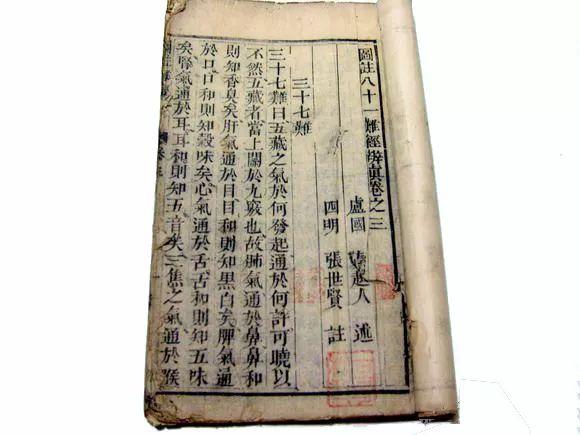 圖註八十一難經辨真卷之三
盧國 秦越人 述
四明 張世賢 註
三十七難
三十七難曰五藏之氣於何發起通於何許可曉以
不然五藏者當上關於九竅也故肺氣通於鼻鼻和
則知香臭矣肝氣通於目目和則知黑白矣脾氣通
於口口和則知穀味矣心氣通於舌舌和則知五味
矣腎氣通於耳耳和則知五音矣三焦之氣通於喉